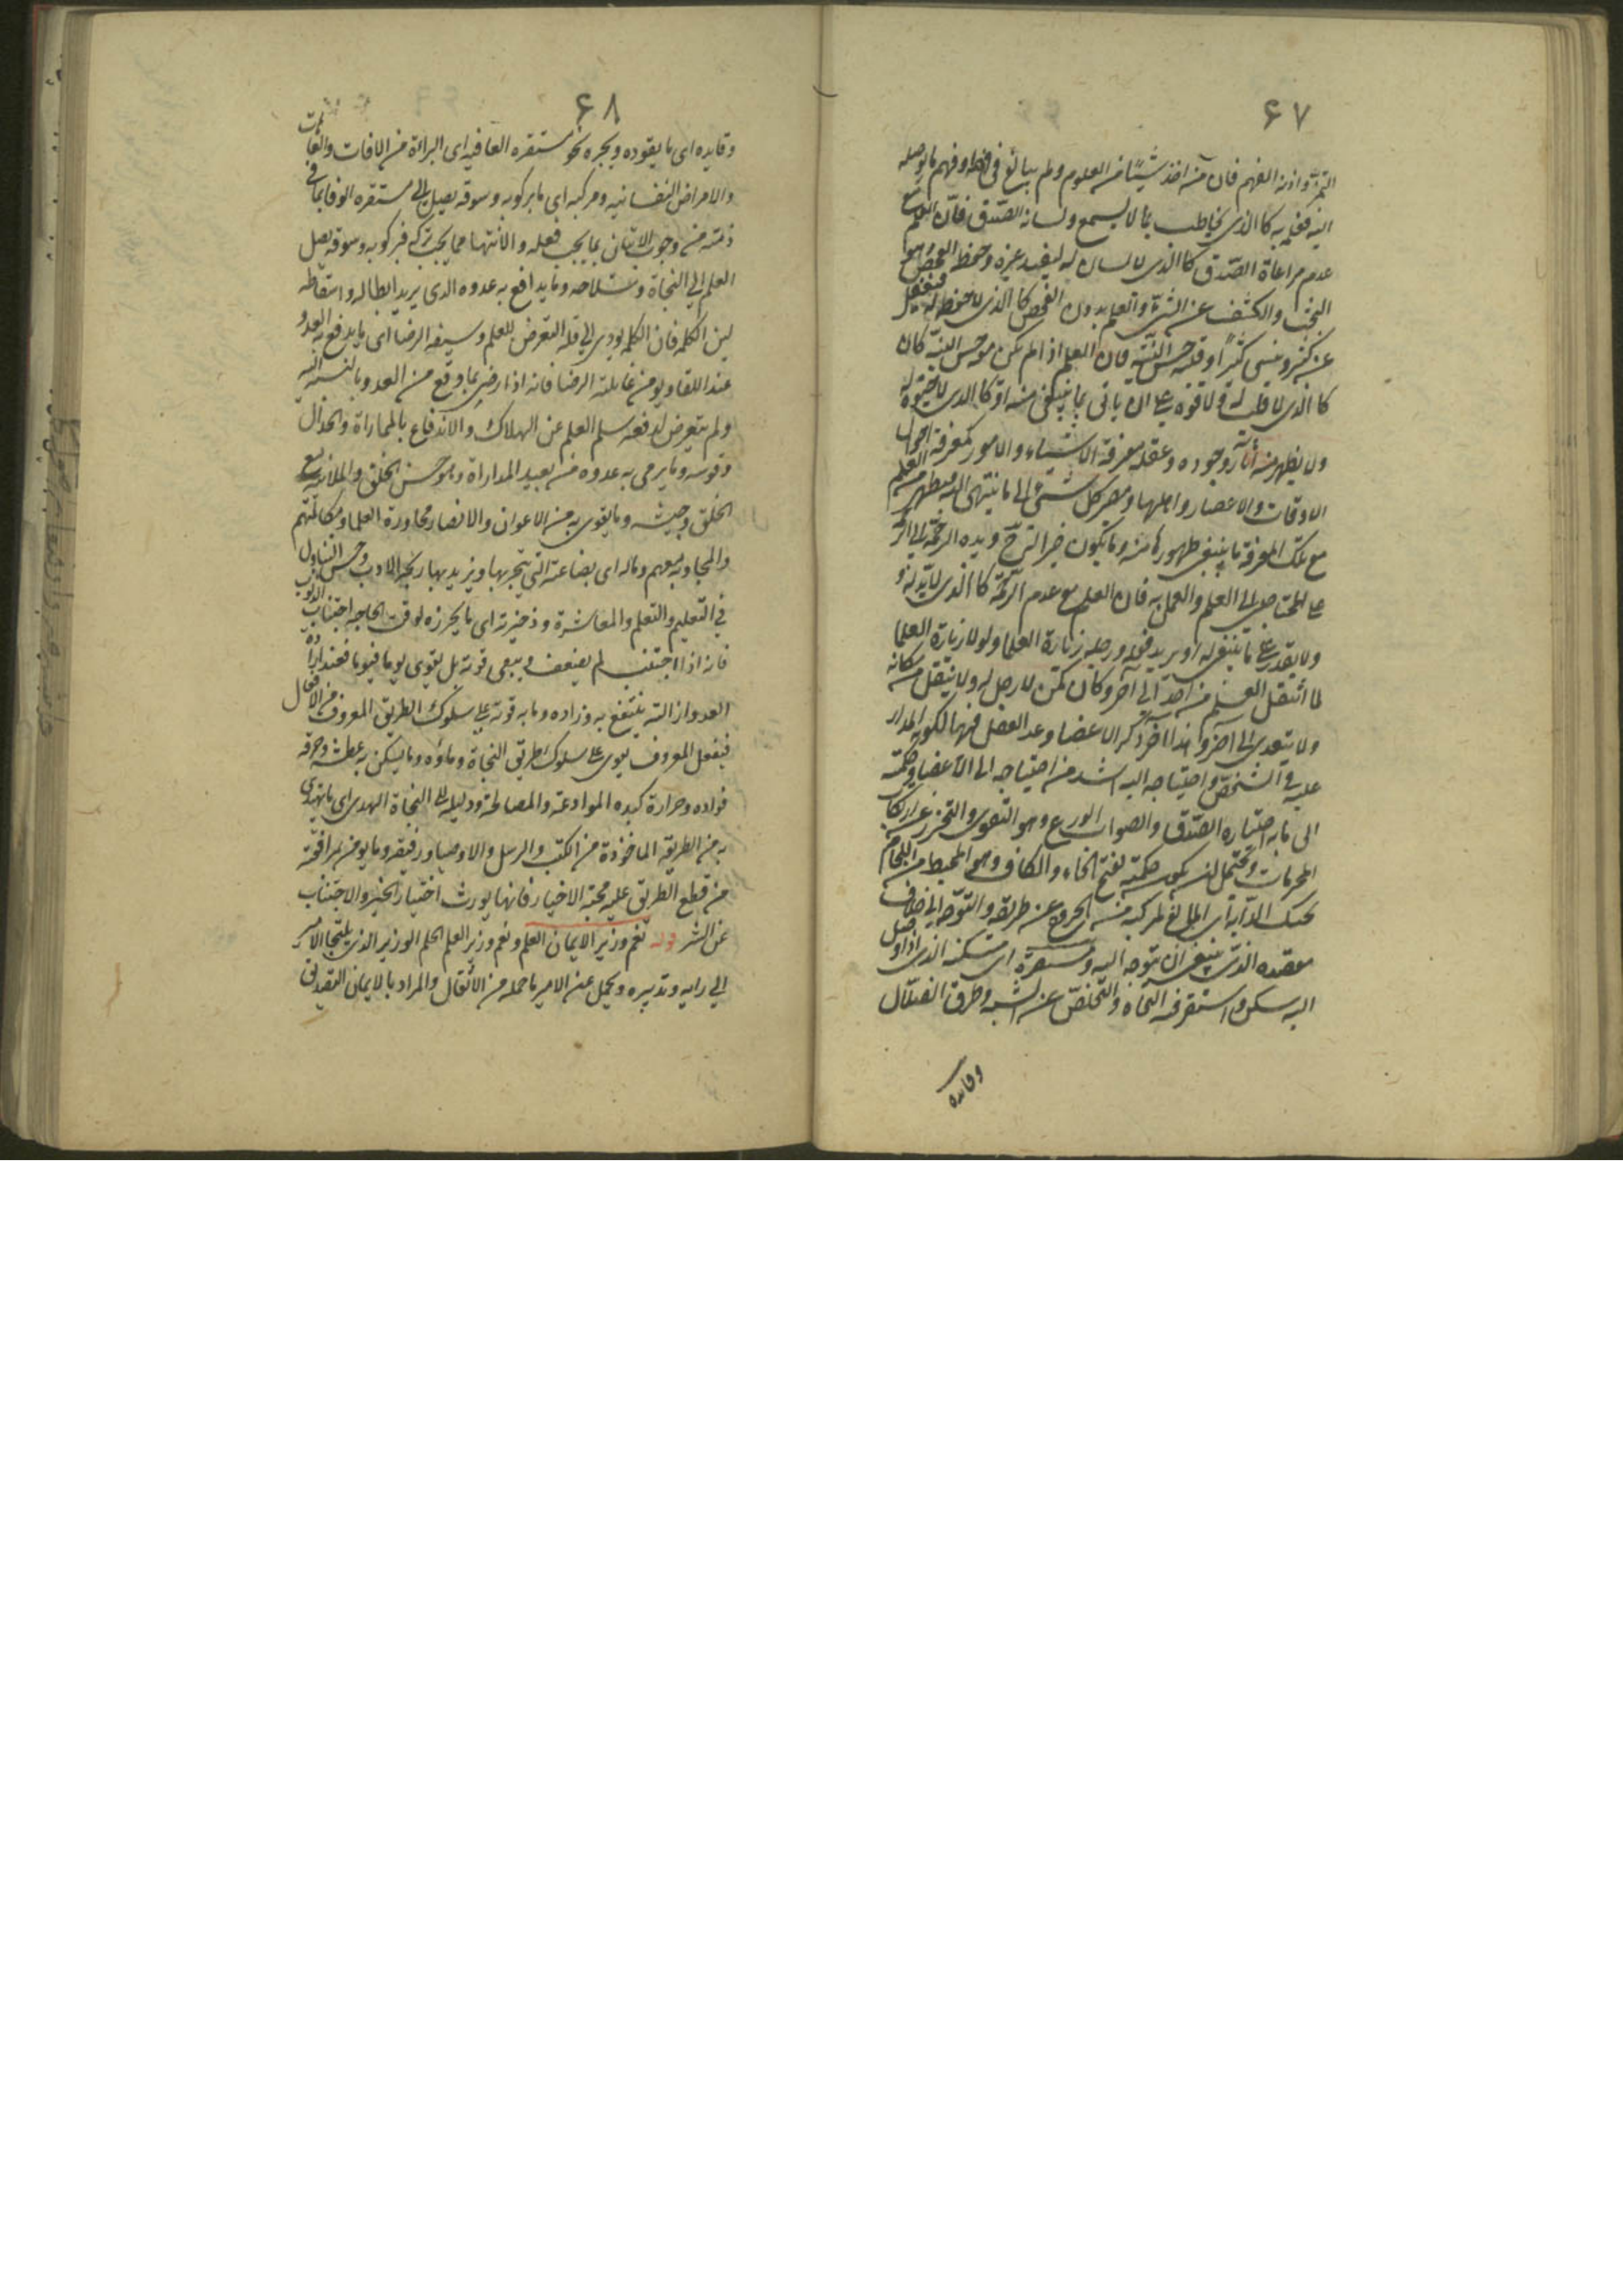 ۶۷
التمیز واذنه الفهم فان من اخذ شیئا من العلوم ولم یبالغ فی حفظه وفهم ما یوصله
الیه فعلمه کالذی یخاطب بما لا یسمع ولسانه الصدق فان العلم مع
عدم مراعاة الصدق کالذی لا لسان له لیفید غیره وحفظه الفحص وهو
البحث والکشف عن الشئ والعلم بدون الفحص کالذی لا حفظ له فیغفل
عن کثیر وینسی کثیرا وقلبه حسن النیة فان العلم اذا لم یکن مع حسن النیة کان
کالذی لا قلب له ولا قوة علی ان یاتی بما ینبغی منه او کالذی لا حیوة له
ولا یظهر منه آثار وجوده وعقله معرفة الاشیاء والامور کمعرفة احوال
الاوقات والاعصار واهلها ومصیر کل شئ الی ما ینتهی الیه فیظهر من العلم
مع تلک المعرفة ما ینبغی ظهوره منه وما یکون خیرا لترتبه ویده الرحمة ای الرحمة
علی المحتاجین الی العلم والعمل به فان العلم مع عدم الرحمة کالذی لا ید له
ولا یقدر علی ما ینبغی له او یرید فعله ورجله زیارة العلما ولولا زیارة العلما
لما انتقل العلم من احد الی آخر وکان کمن لا رجل له ولا ینتقل من مکانه
ولا یتعدی الی آخر وهذا آخر ذکر الاعضا وعد العقل فیها لکونه المدار
علیه فی الشخص واحتیاجه الیه اشد من احتیاجه الی الاعضا وحکمته
ای ما به اختیاره الصدق والصواب الورع وهو التقوی والتحرز عن ارتکاب
المحرمات ویحتمل ان یکون حکمته بفتح الحاء والکاف وهو المحیط من اللجام
بحنک الدابة ای المانع لمرکبه من الخروج عن طریقه والتوجه الی خلاف
مقصده الذی ینبغی ان یتوجه الیه ومستقره ای مسکنه الذی اذا وصل
الیه سکن واستقر فیه النجاة والتخلص عن الشبه وطرق الضلال
وقایده
۶۸
وقایده ای ما یقوده ویجره نحو مستقره العافیه ای البرائة من الافات والعاهات
والامراض النفسانیه ومرکبه ای ما برکوبه وسوقه یصل الی مستقره الوفا بما فی
ذمته من وجوب الاتیان بما یجب فعله والانتها عما یجب ترکه فبرکوبه وسوقه یصل
العلم الی النجاة وسلاحه وما یدافع به عدوه الذی یرید ابطاله واسقاطه
لین الکلمه فان الکلمه یودی الی قلة التعرض للعلم وسیفه الرضا ای ما یدفع به العدو
عند اللقا ویومن غایلته الرضا فانه اذا رضی بما وقع من العدو بالنسبة الیه
ولم یتعرض لدفعه سلم العلم عن الهلاک والاندفاع بالمماراة والجدال
وقوسه وما یرمی به عدوه من بعید المداراة وهو حسن الخلق والملاینة مع
الخلق وجیشه وما یقوی به من الاعوان والانصار محاورة العلما ومکالمتهم
والمجاوبه معهم وماله ای بضاعته التی یتجر بها ویزید بها ربحه الادب وحسن التناول
فی التعلیم والتعلم والمعاشرة وذخیرته ای ما یحرزه لوقت الحاجه اجتناب الذنوب
فانه اذا اجتنب لم یضعف ویبقی قوته بل یقوی یوما فیوما فعند ارادة
العدو ازالته ینتفع به وزاده وما به قوته علی سلوک الطریق المعروف من الافعال
فبفعل المعروف یقوی علی سلوک طریق النجاة وماؤه وما یسکن به عطشه وحرقة
فواده وحرارة کبده الموادعة والمصالحة ودلیله الی النجاة الهدی ای ما یهتدی
به من الطریقه الماخوذة من الکتب والرسل والاوصیا ورفیقه وما یومن بمرافقته
من قطع الطریق علیه محبة الاخیار فانها یورث اختیار الخیر والاجتناب
عن الشر قوله نعم وزیر الایمان العلم ونعم وزیر العلم الحلم الوزیر الذی یلتجا الامیر
الی رایه وتدبیره ویحمل عن الامیر ما حمله من الاثقال والمراد بالایمان التصدیق